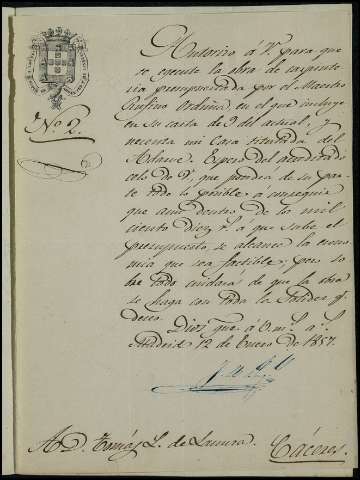 Nº 2.
Autorizo á V. para que
se ejecute la obra de carpinte
ria presupuestada por el Maestro
Rufino Orduña en el que incluye
en su carta de 9 del actual, y
necesita mi Casa titulada del
Espero del acreditado
celo de V. que pondrá de su par
te todo lo posible á conseguir
que aun dentro de los mil
ciento diez r.s á que sube el
presupuesto se alcance la econo
mia que sea factible; pero so
bre todo cuidará de que la obra
se haga con toda la solidez q.e
deseo.
Dios gue. á V. m.s a.s
Madrid 12 de Enero de 1857.
A D. Tomás L. de
Cáceres.